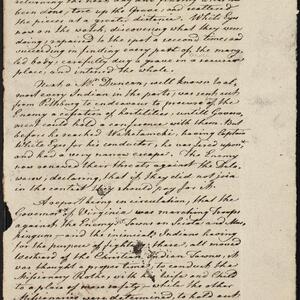 been done, tore up the Grave, and scattered
the pieces at a great distance. White Eyes
now on the watch, discovering what they were
doing, repaired to the spot a second time, and
succeeding in finding every part of the mang-
led body, carefully dug a grave in a
place, and interred the whole.
Next a Mr. Duncan, well known to all,
most every Indian in the parts, was sent out
from Pittsburg to endeavour to procure of the
Enemy a cessation of hostilities, until
ment could hold a conference with them. But
before he reached Wakatameki, having Captn
White Eyes for his conductor, he was fired upon
and had a very narrow escape. The Enemy
now renewed their threats against the Dela-
wares, declaring, that if they did not join
in the contest they should pay for it.
A report being in circulation, that the
Governor of Virginia was marching troops
against the Enemy's Towns on Scioto,
and the inimical Indians having
for the purpose of fighting these, all moved
of the Christian Indian Towns, it
was thought a proper time to conduct the
Missionary Rothe with his wife and Child
to a place of more safety, while the other
Missionaries were determined to hold out